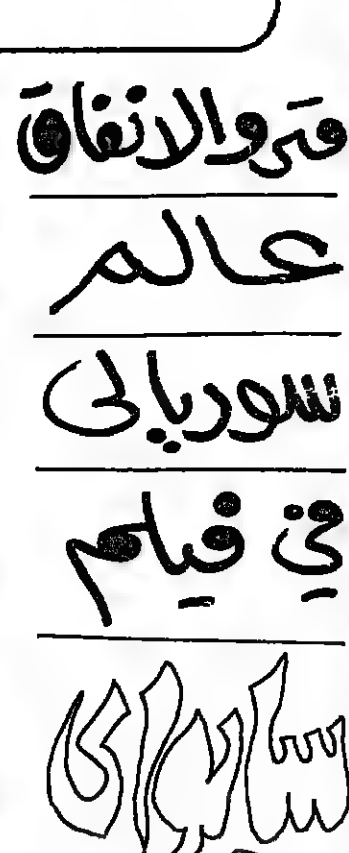 مترو الانفاق
عالم
سوريالى
في فيلم
سابواى